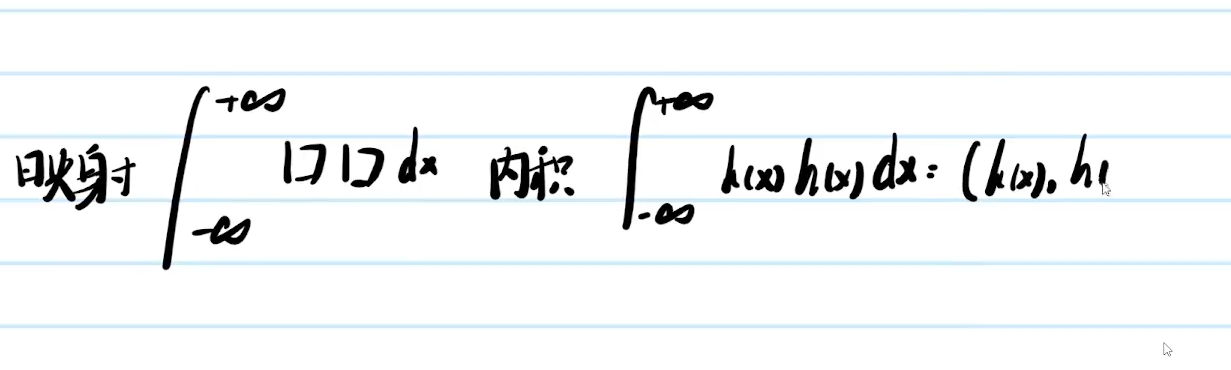 映射 ∫_{-∞}^{+∞} □ □ dx 内积 ∫_{-∞}^{+∞} h(x) h(x) dx = (h(x), h(